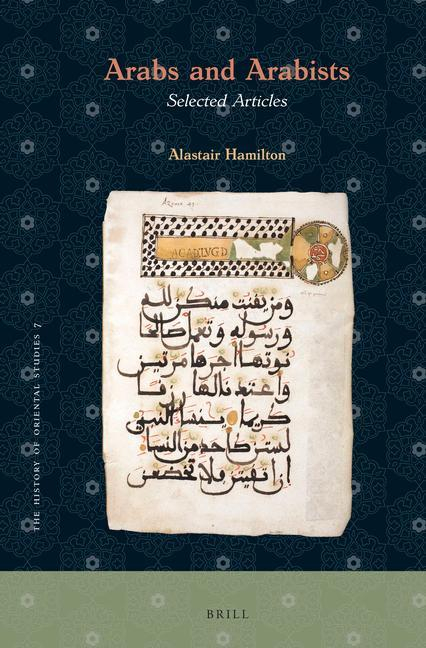 Arabs and Arabists
Selected Articles
Alastair Hamilton
ومن يقنت منكن لله
ورسوله وتعمل صالحا
نوتها اجرها مرتين
واعتدنا لها رزقا
كريما ينساء النبي
لستن كاحد من النساء
ان اتقيتن ولا تخضعن
THE HISTORY OF ORIENTAL STUDIES 7
BRILL